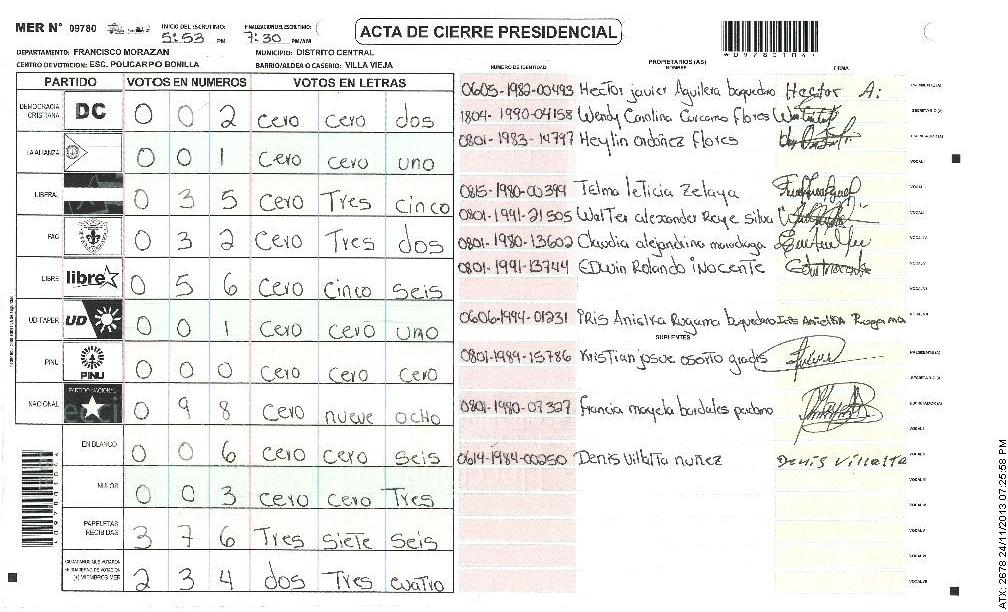 MER N° 09780
INICIO DEL ESCRUTINIO: 5:53 PM
FINALIZACION DEL ESCRUTINIO: 7:30 PM/AM
ACTA DE CIERRE PRESIDENCIAL
DEPARTAMENTO: FRANCISCO MORAZAN
MUNICIPIO: DISTRITO CENTRAL
CENTRO DE VOTACION: ESC. POLICARPO BONILLA
BARRIO/ALDEA O CASERIO: VILLA VIEJA
PARTIDO VOTOS EN NUMEROS VOTOS EN LETRAS
DEMOCRACIA CRISTIANA DC 0 0 2 cero cero dos
LA ALIANZA 0 0 1 cero cero uno
LIBERAL 0 3 5 cero Tres cinco
PAC 0 3 2 cero Tres dos
LIBRE libre 0 5 6 cero cinco seis
UD-FAPER UD 0 0 1 cero cero uno
PINU PINU 0 0 0 cero cero cero
NACIONAL PARTIDO NACIONAL 0 9 8 cero nueve ocho
EN BLANCO 0 0 6 cero cero seis
NULOS 0 0 3 cero cero Tres
PAPELETAS RECIBIDAS 3 7 6 Tres siete seis
CIUDADANOS QUE VOTARON EN CUADERNO DE VOTACION (+) MIEMBROS MER 2 3 4 dos Tres cuatro
NUMERO DE IDENTIDAD
PROPIETARIOS (AS)
NOMBRE
FIRMA
0605-1982-00493 Hector javier Aguilera baquedano Hector A:
1804-1990-04158 Wendy Carolina Carcamo Flores
0801-1983-14797 Heylin ordoñez flores
0815-1980-00399 Telma leticia Zelaya
0801-1991-21505 Walter alexander Reye silva
0801-1980-13602 Claudia alejandrina
0801-1991-13744 EDwin Rolando iNocente
0606-1994-01231 iRis Anielka Rugama baquedano Iris Anielka Rugama
SUPLENTES
0801-1994-15786 Kristian josue osorto
0801-1980-07327 francia mayela bardales
0614-1984-00250 Denis Villatta nuñez Denis Villatta
ATX: 2678 24/11/2013 07:25:58 PM